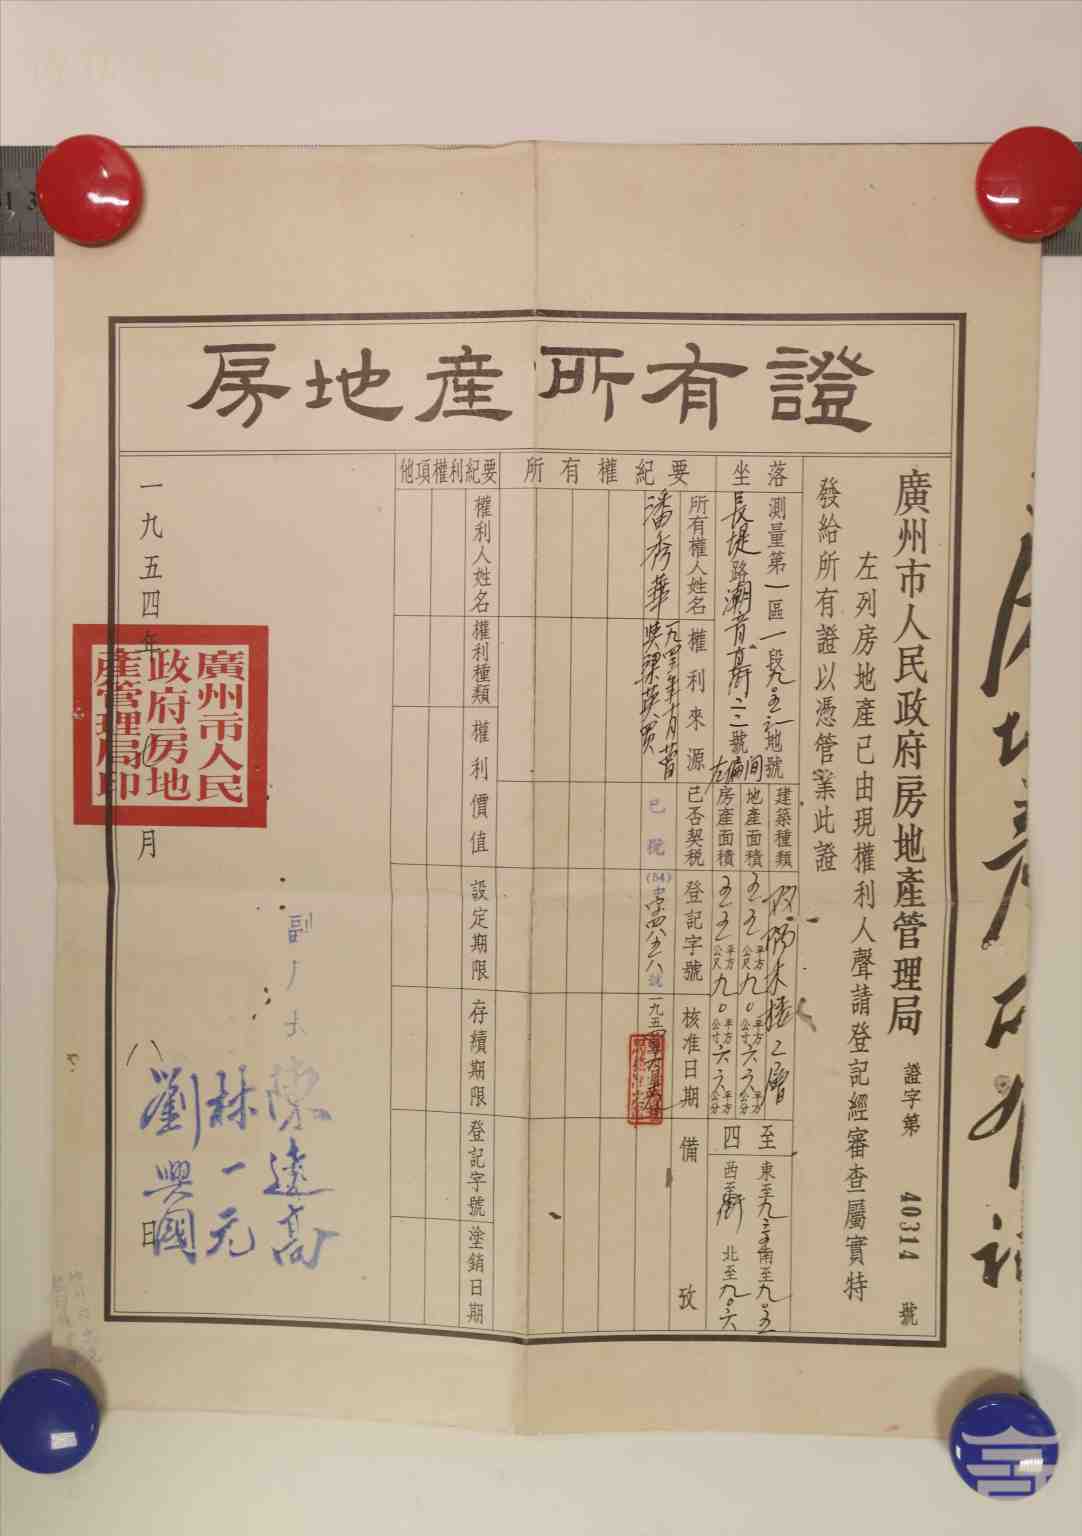 房地產所有證
廣州市人民政府房地產管理局
證字第 40314 號
左列房地產已由現權利人聲請登記經審查屬實特
發給所有證以憑管業此證
坐落
測量第一區一段九〇五之一地號
長堤路潮音街二二號
左偏間
建築種類
磚木樓二層
地產面積
五五平方公尺九〇平方公寸六六平方公分
房產面積
五五平方公尺九〇平方公寸六六平方公分
四至
東至九
南至九〇五
西至街
北至九〇六
所有權紀要
所有權人姓名
權利來源
已否契稅
登記字號
核准日期
備攷
潘秀華
已稅
(54)字四八五八號
一九五四年六月
他項權利紀要
權利人姓名
權利種類
權利價值
設定期限
存續期限
登記字號
塗銷日期
一九五四年七月日
廣州市人民
政府房地
產管理局印
副
陳遠高
林一元
劉興國